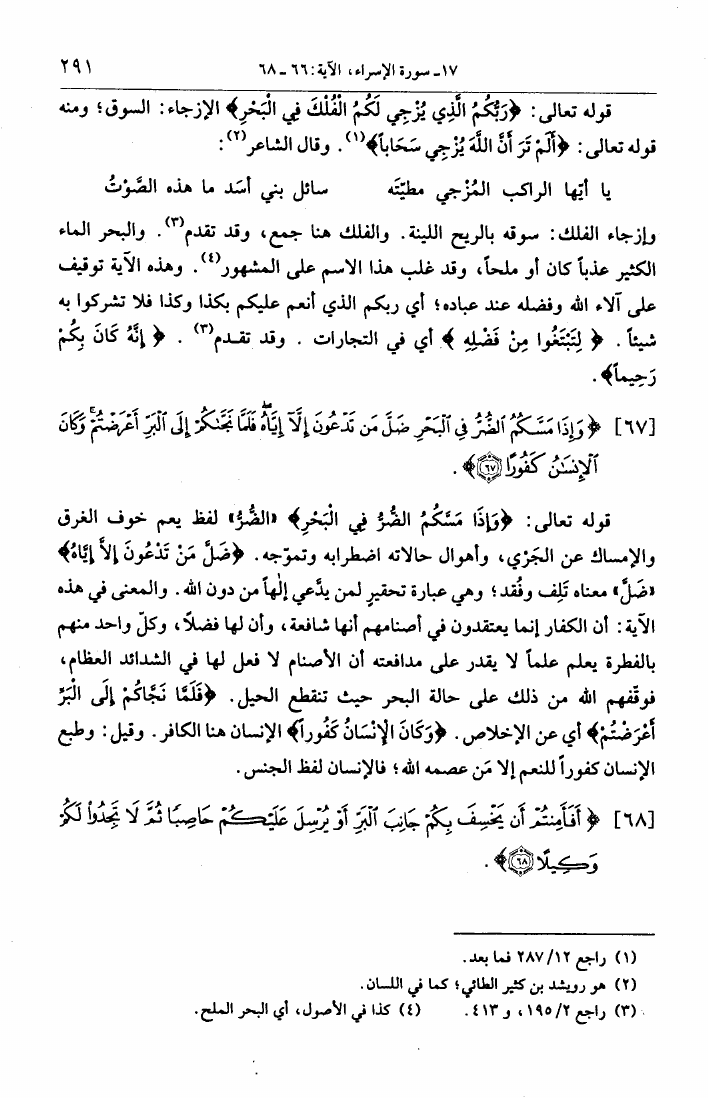 ١٧ ـ سورة الإسراء، الآية: ٦٦ ـ ٦٨ ٢٩١
قوله تعالى: ﴿رَبُّكُمُ الَّذِي يُزْجِي لَكُمُ الْفُلْكَ فِي الْبَحْرِ﴾ الإزجاء: السوق؛ ومنه
قوله تعالى: ﴿أَلَمْ تَرَ أَنَّ اللَّهَ يُزْجِي سَحَاباً﴾(١). وقال الشاعر(٢):
يا أيّها الراكب المُزْجي مطيّتَه سائل بني أسَد ما هذه الصَّوْتُ
وإزجاء الفلك: سوقه بالريح اللينة. والفلك هنا جمع، وقد تقدم(٣). والبحر الماء
الكثير عذباً كان أو ملحاً، وقد غلب هذا الاسم على المشهور(٤). وهذه الآية توقيف
على آلاء الله وفضله عند عباده؛ أي ربكم الذي أنعم عليكم بكذا وكذا فلا تشركوا به
شيئاً. ﴿لِتَبْتَغُوا مِنْ فَضْلِهِ﴾ أي في التجارات. وقد تقـدم(٣). ﴿إِنَّهُ كَانَ بِكُمْ
رَحِيماً﴾.
[٦٧] ﴿وَإِذَا مَسَّكُمُ الضُّرُّ فِي الْبَحْرِ ضَلَّ مَن تَدْعُونَ إِلَّآ إِيَّاهُ فَلَمَّا نَجَّىٰكُمْ إِلَى الْبَرِّ أَعْرَضْتُمْ وَكَانَ
الْإِنسَٰنُ كَفُورًا ﴿٦٧﴾﴾.
قوله تعالى: ﴿وَإِذَا مَسَّكُمُ الضُّرُّ فِي الْبَحْرِ﴾ «الضُّرُّ» لفظ يعم خوف الغرق
والإمساك عن الجَرْي، وأهوال حالاته اضطرابه وتموّجه. ﴿ضَلَّ مَنْ تَدْعُونَ إِلاَّ إِيَّاهُ﴾
«ضَلَّ» معناه تَلِف وفُقد؛ وهي عبارة تحقيرٍ لمن يدَّعي إلٰهاً من دون الله. والمعنى في هذه
الآية: أن الكفار إنما يعتقدون في أصنامهم أنها شافعة، وأن لها فضلاً، وكلّ واحد منهم
بالفطرة يعلم علماً لا يقدر على مدافعته أن الأصنام لا فعل لها في الشدائد العظام،
فوقّفهم الله من ذلك على حالة البحر حيث تنقطع الحيل. ﴿فَلَمَّا نَجَّاكُمْ إِلَى الْبَرِّ
أَعْرَضْتُمْ﴾ أي عن الإخلاص. ﴿وَكَانَ الْإِنْسَانُ كَفُوراً﴾ الإنسان هنا الكافر. وقيل: وطبع
الإنسان كفوراً للنعم إلا مَن عصمه الله؛ فالإنسان لفظ الجنس.
[٦٨] ﴿أَفَأَمِنتُمْ أَن يَخْسِفَ بِكُمْ جَانِبَ الْبَرِّ أَوْ يُرْسِلَ عَلَيْكُمْ حَاصِبًا ثُمَّ لَا تَجِدُوا لَكُمْ
وَكِيلًا ﴿٦٨﴾﴾.
(١) راجع ٢٨٧/١٢ فما بعد.
(٢) هو رويشد بن كثير الطائي؛ كما في اللسان.
(٣) راجع ١٩٥/٢، و ٤١٣. (٤) كذا في الأصول، أي البحر الملح.